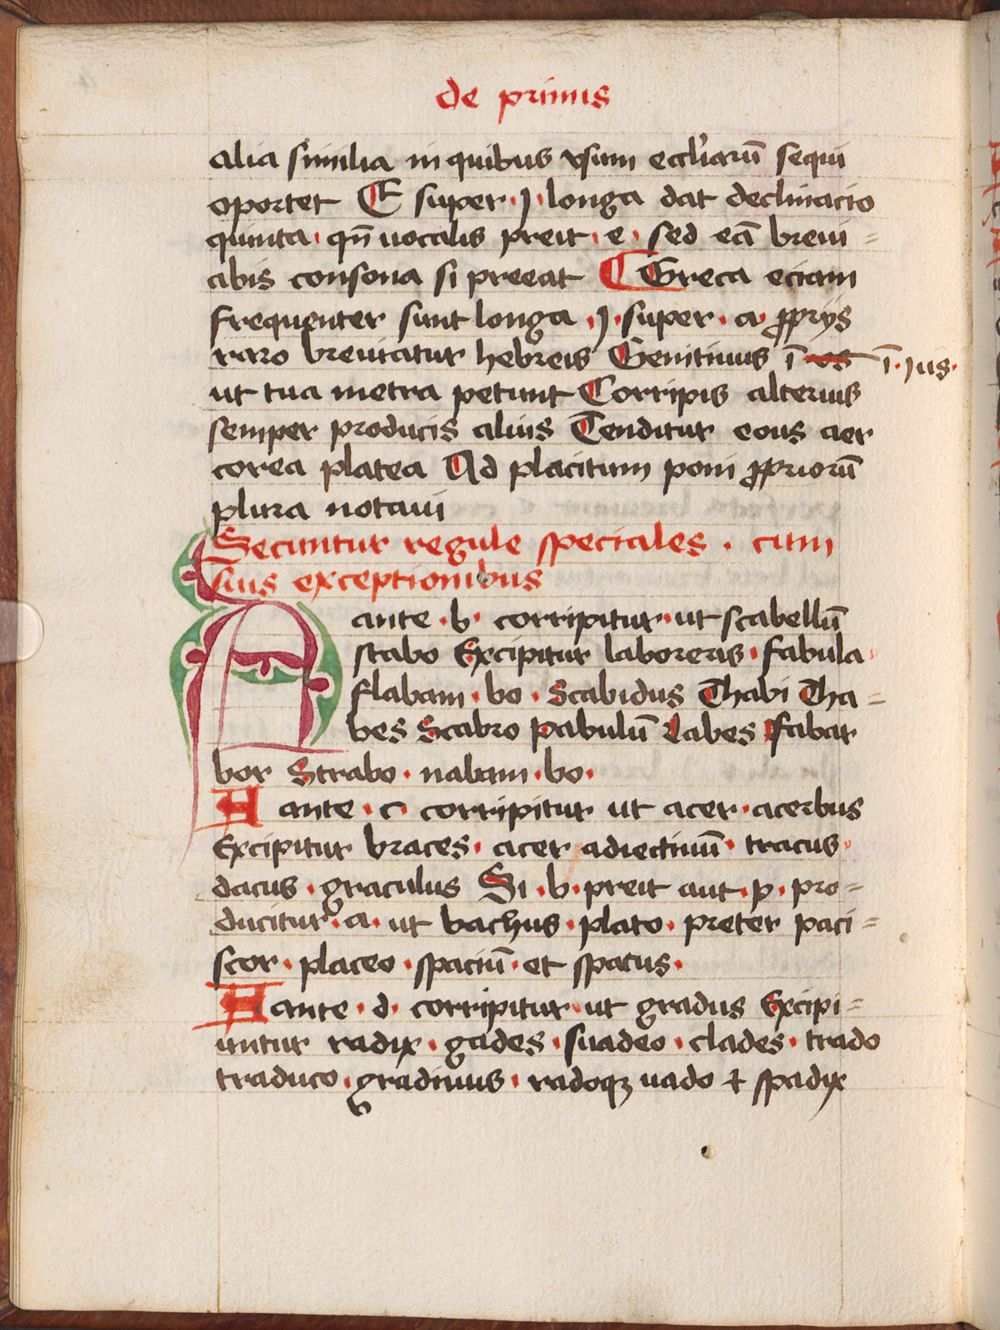 de primis
alia similia in quibus vsum eccl'iarū sequi
oportet E super · J · longa dat declinacio
quinta · qn̄ uocalis preit · e · sed eā breui =
abis consona si preeat Greca eciam
frequenter sunt longa · J · super · a · ꝓprijs
raro breuiatur hebreis Genitiuus ī os ī · Jus ·
ut tua metra petunt Corripis alterius
semper producis alius Tenditur eous aer
corea platea Ad placitum poni ꝓpriorū
plura notaui
Secuntur regule speciales · cum
suis exceptionibus
A ante · b · corripitur · ut scabellū
stabo Excipitur laboreris · fabula ·
flabam · bo · Scabidus Thabi Tha =
bes Scabro pabulū Labes fabar
bor Strabo · nabam · bo ·
A ante · c · corripitur ut acer · acerbus
Excipitur braces · acer adiectiuū · tracus ·
dacus · graculus Si · b · preit aut · p · pro =
ducitur · a · ut bachus · plato · preter paci =
scor · placeo · spaciū · et spacus ·
A ante · d · corripitur · ut gradus Excipi =
untur radix · gades · suadeo · clades · trado
traduco · gradiuus · radoqꝫ uado ⁊ spadix